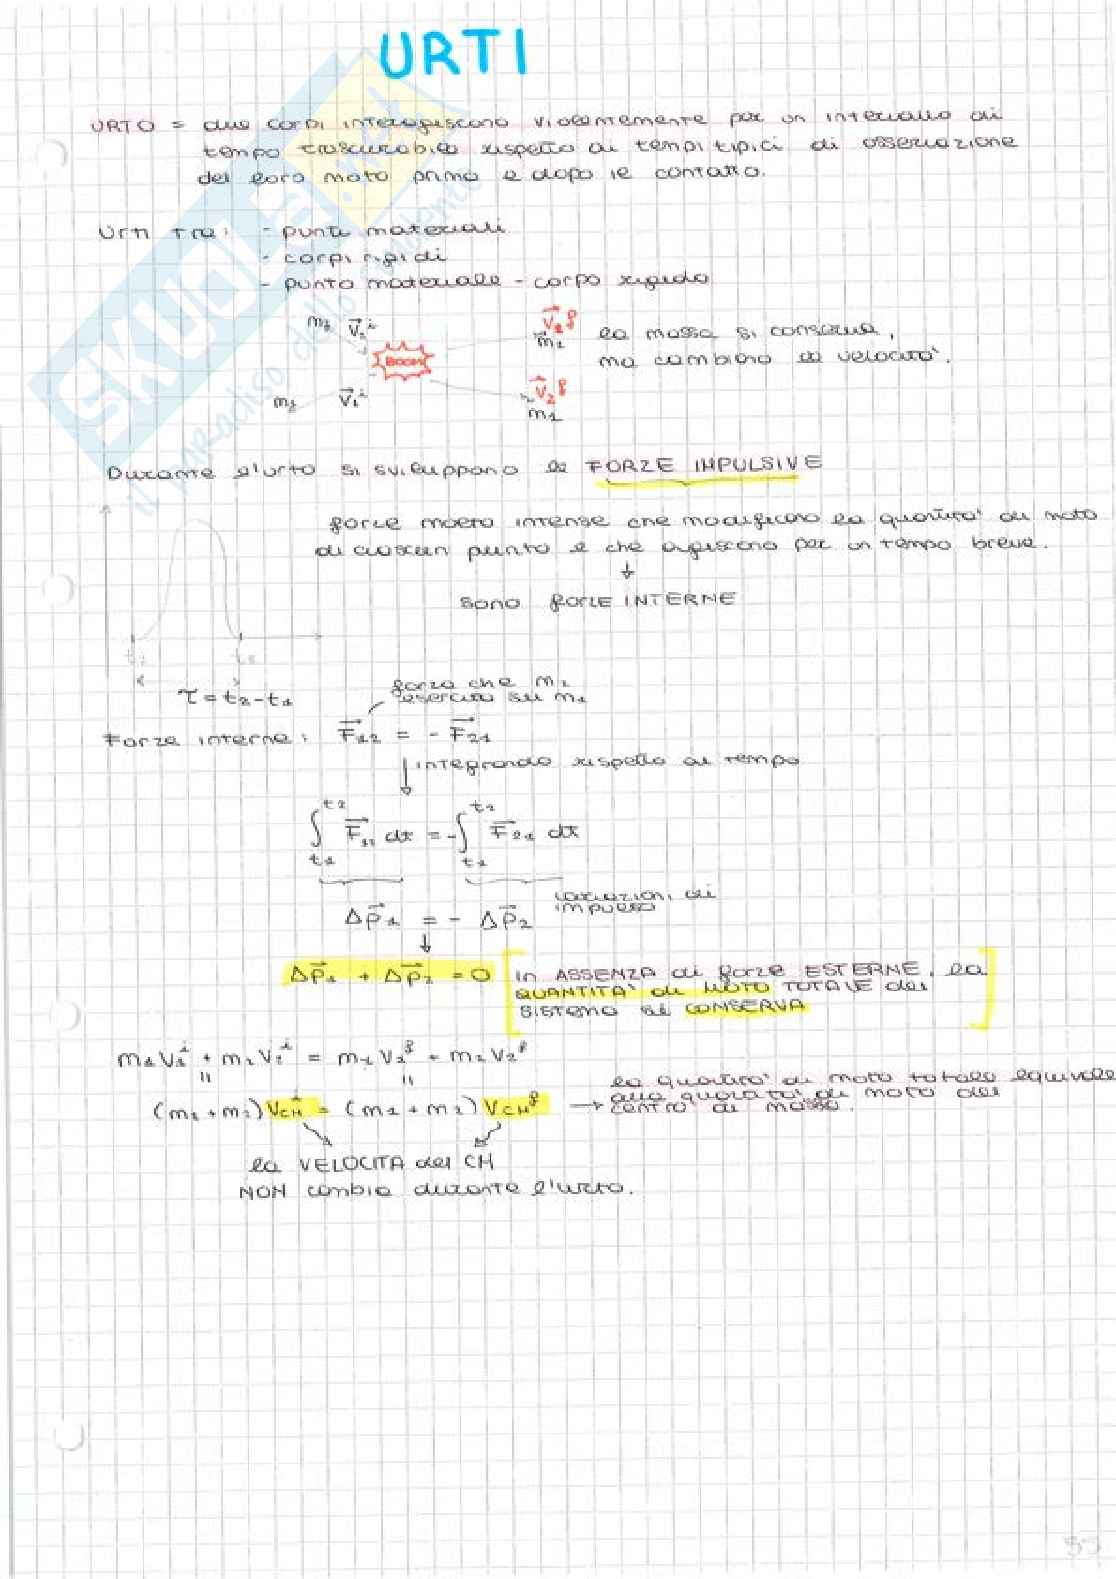 URTI
URTO = due corpi interagiscono violentemente per un intervallo di
tempo trascurabile rispetto ai tempi tipici di osservazione
del loro moto prima e dopo il contatto.
Urti tra: - punti materiali
- corpi rigidi
- punto materiale - corpo rigido
m₂ v⃗₂ⁱ
BOOM
v⃗₁ᶠ
m₁
la massa si conserva,
ma cambiano le velocità.
m₁ v⃗₁ⁱ
v⃗₂ᶠ
m₂
Durante l'urto si sviluppano le FORZE IMPULSIVE
forze molto intense che modificano la quantità di moto
di ciascun punto e che agiscono per un tempo breve.
↓
sono forze INTERNE
t₁ t₂
τ = t₂ - t₁
forza che m₂
esercita su m₁
Forze interne: F⃗₁₂ = - F⃗₂₁
↓ integrando rispetto al tempo
∫ₜ₁ᵗ² F⃗₁₂ dt = -∫ₜ₁ᵗ² F⃗₂₁ dt
variazioni di
impulso
Δp⃗₁ = - Δp⃗₂
↓
Δp⃗₁ + Δp⃗₂ = 0 [in ASSENZA di forze ESTERNE, la
QUANTITA' di MOTO TOTALE del
sistema si CONSERVA]
m₁v₁ⁱ + m₂v₂ⁱ = m₁v₁ᶠ + m₂v₂ᶠ
(m₁+m₂)v_CMⁱ = (m₁+m₂)v_CMᶠ → la quantità di moto totale equivale
alla quantità di moto del
centro di massa.
la VELOCITA del CM
NON cambia durante l'urto.
SKUOLA.net
il paradiso dello studente